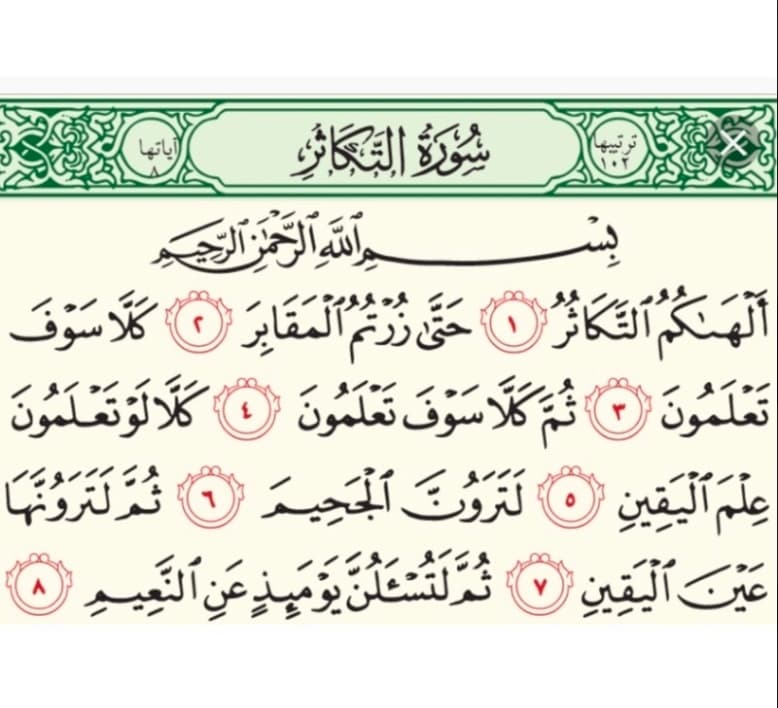 ترتيبها ١٠٢
سُورَةُ التَّكَاثُرِ
آياتها ٨
بِسْمِ ٱللَّهِ ٱلرَّحْمَٰنِ ٱلرَّحِيمِ
أَلْهَىٰكُمُ ٱلتَّكَاثُرُ ١ حَتَّىٰ زُرْتُمُ ٱلْمَقَابِرَ ٢ كَلَّا سَوْفَ
تَعْلَمُونَ ٣ ثُمَّ كَلَّا سَوْفَ تَعْلَمُونَ ٤ كَلَّا لَوْ تَعْلَمُونَ
عِلْمَ ٱلْيَقِينِ ٥ لَتَرَوُنَّ ٱلْجَحِيمَ ٦ ثُمَّ لَتَرَوُنَّهَا
عَيْنَ ٱلْيَقِينِ ٧ ثُمَّ لَتُسْـَٔلُنَّ يَوْمَئِذٍ عَنِ ٱلنَّعِيمِ ٨